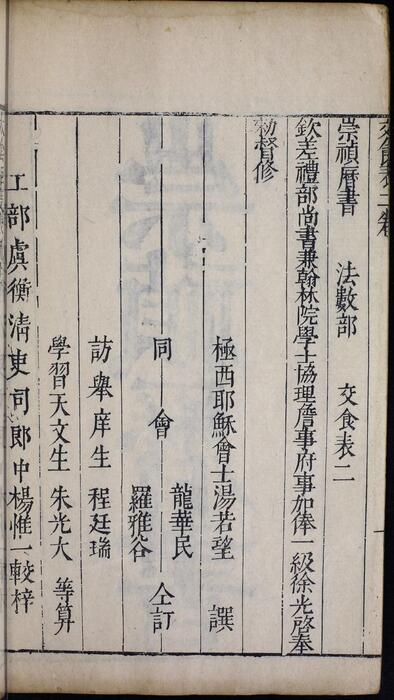 交食表二卷
崇禎曆書　法數部　交食表二
欽差禮部尚書兼翰林院學士協理詹事府事加俸一級徐光啓奉
勑督修
極西耶穌會士湯若望　譔
龍華民
同會　仝訂
羅雅谷
訪舉庠生　程廷瑞
學習天文生　朱光大　等算
工部虞衡清吏司郎中楊惟一較梓